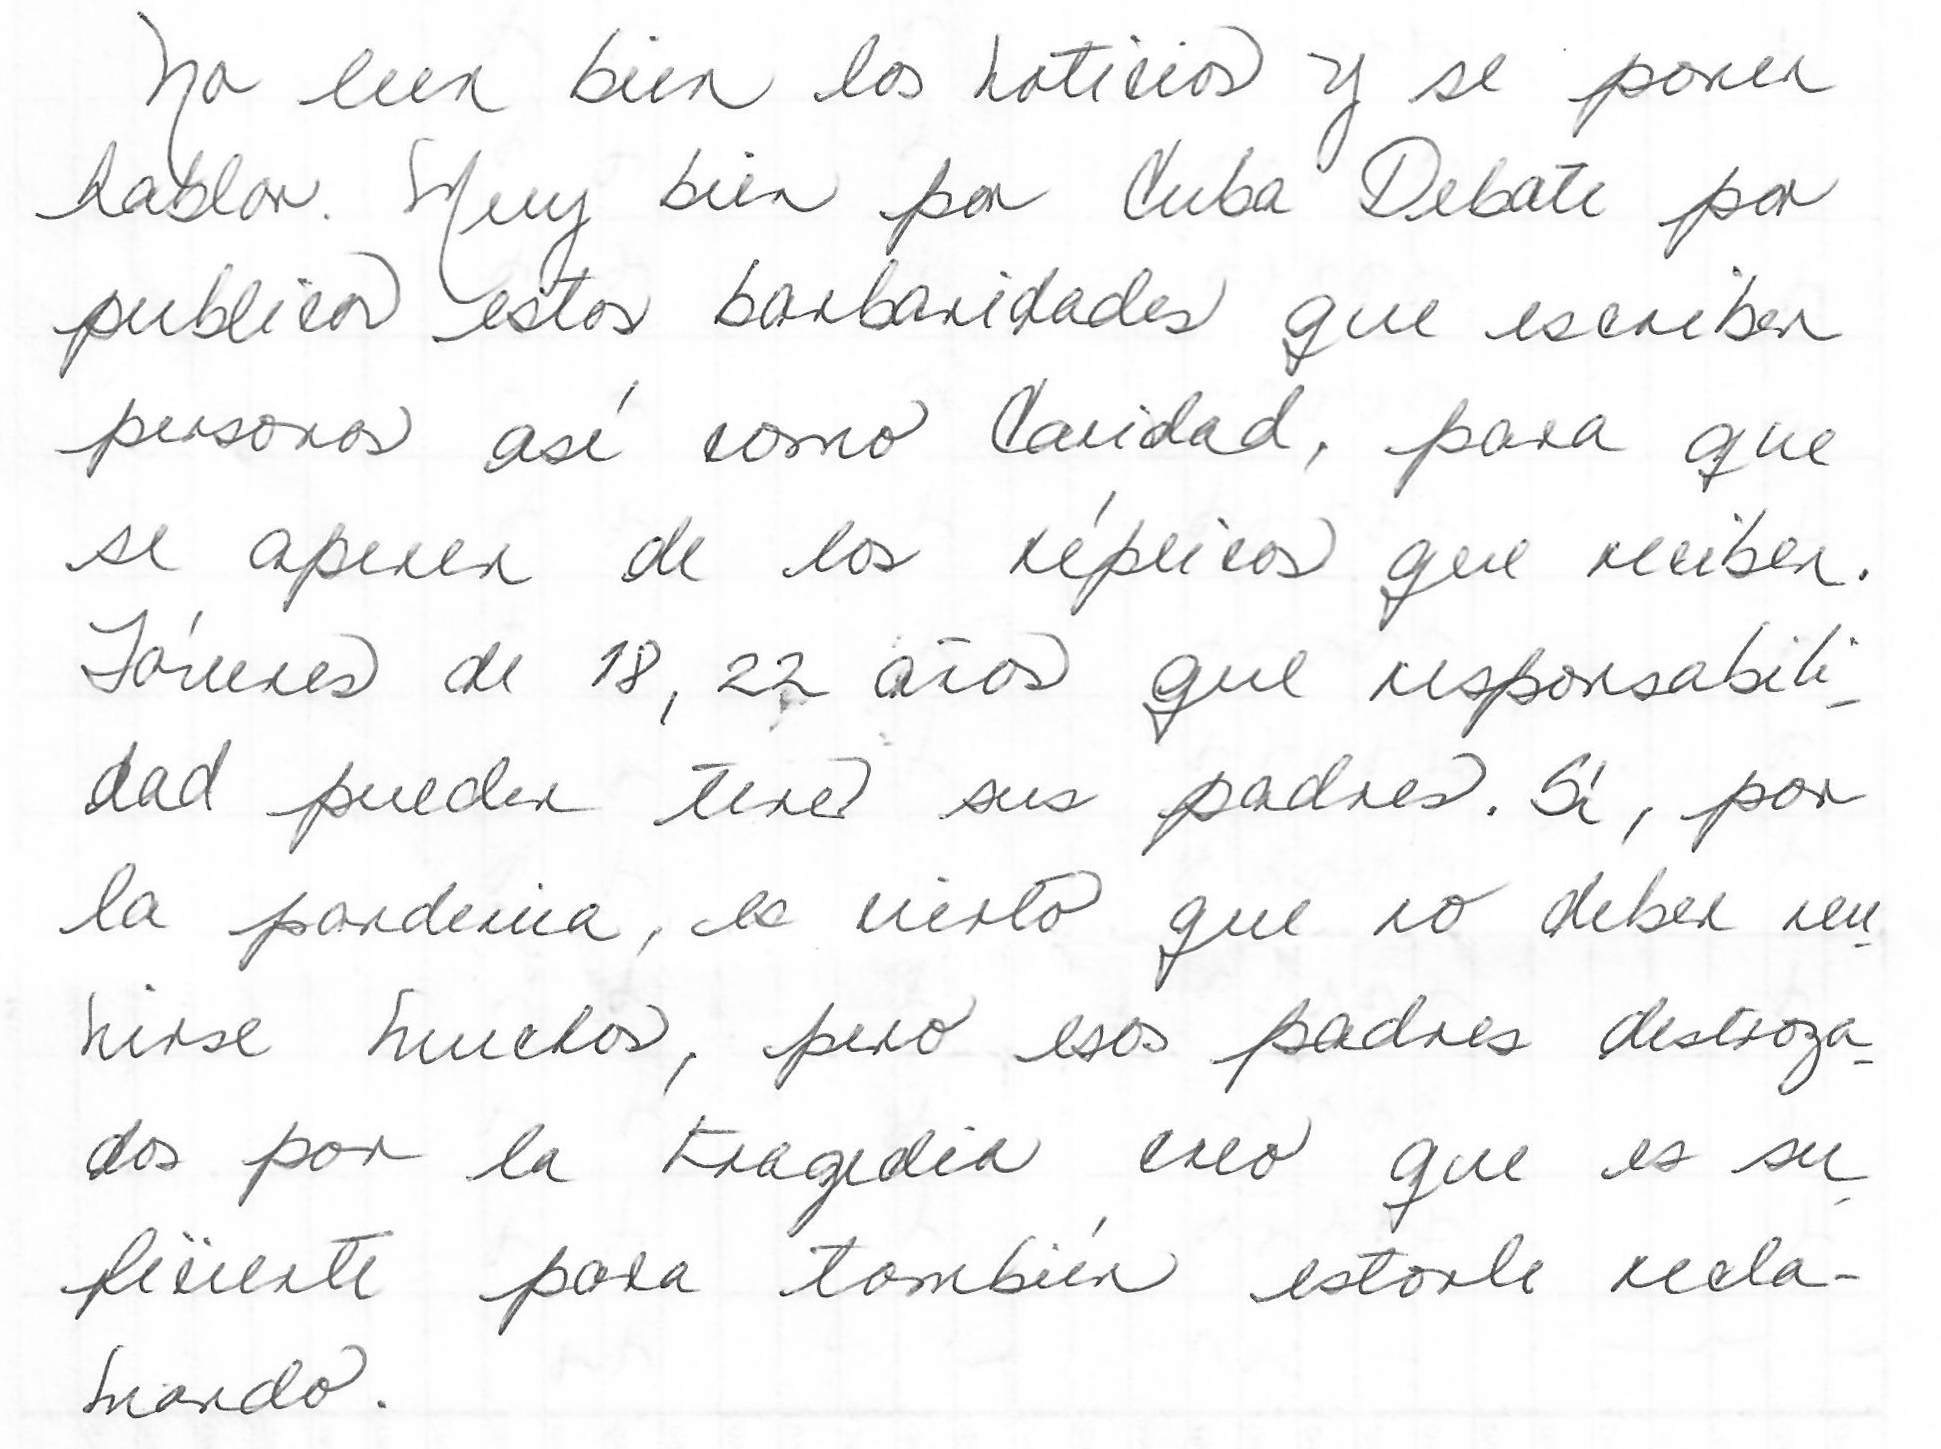 No leen bien las noticias y se ponen
hablar. Muy bien por Cuba Debate por
publicar estas barbaridades que escriben
personas así como Caridad, para que
se apenen de las réplicas que reciben.
Jóvenes de 18, 22 años que responsabili-
dad pueden tener sus padres. Sí, por
la pandemia, es cierto que no deben reu-
nirse muchos, pero esos padres destroza-
dos por la tragedia creo que es su-
ficiente para también estarle recla-
mando.